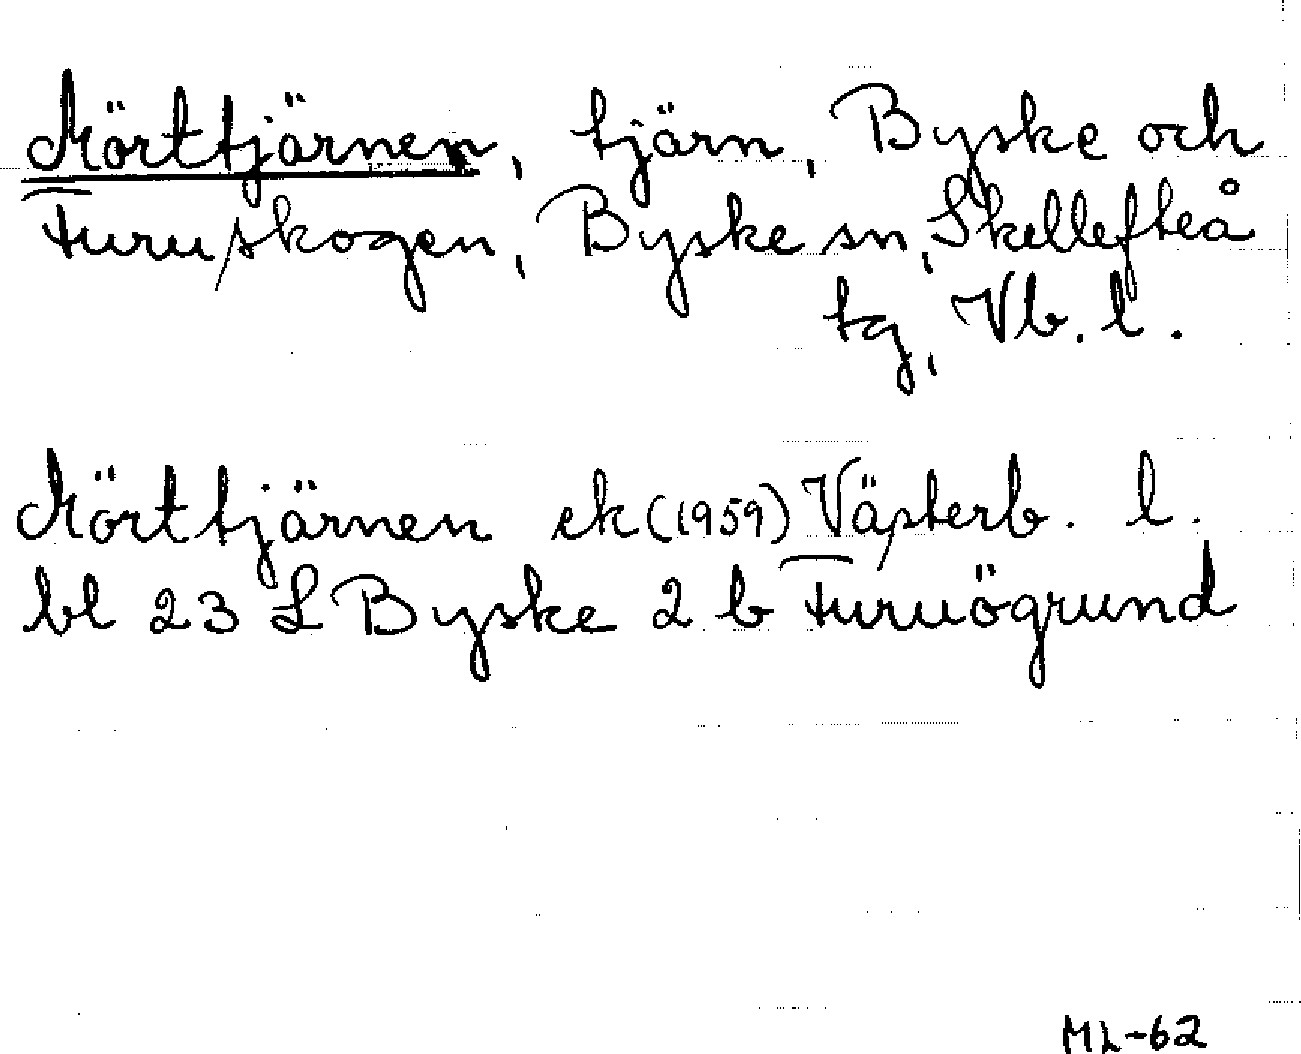 Mörttjärnen, tjärn, Byske och
Furuskogen, Byske sn, Skellefteå
tg, Vb. l.
Mörttjärnen ek (1959) Västerb. l.
bl 23 L Byske 2 b Furuögrund
ML-62